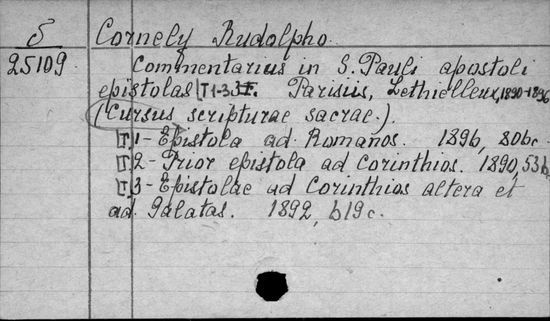 5 Cornely Rudolpho.
25109. Commentarius in S. Pauli apostoli
epistolas [T 1-3. Parisius, Lethielleux, 1890-1896
(Cursus scripturae sacrae.).
[T.] 1 - Epistola ad Romanos. 1896, 806c.
[T.] 2 - Prior epistola ad Corinthios. 1890, 536
[T.] 3 - Epistolae ad Corinthios altera et
ad Galatas. 1892, 619c.